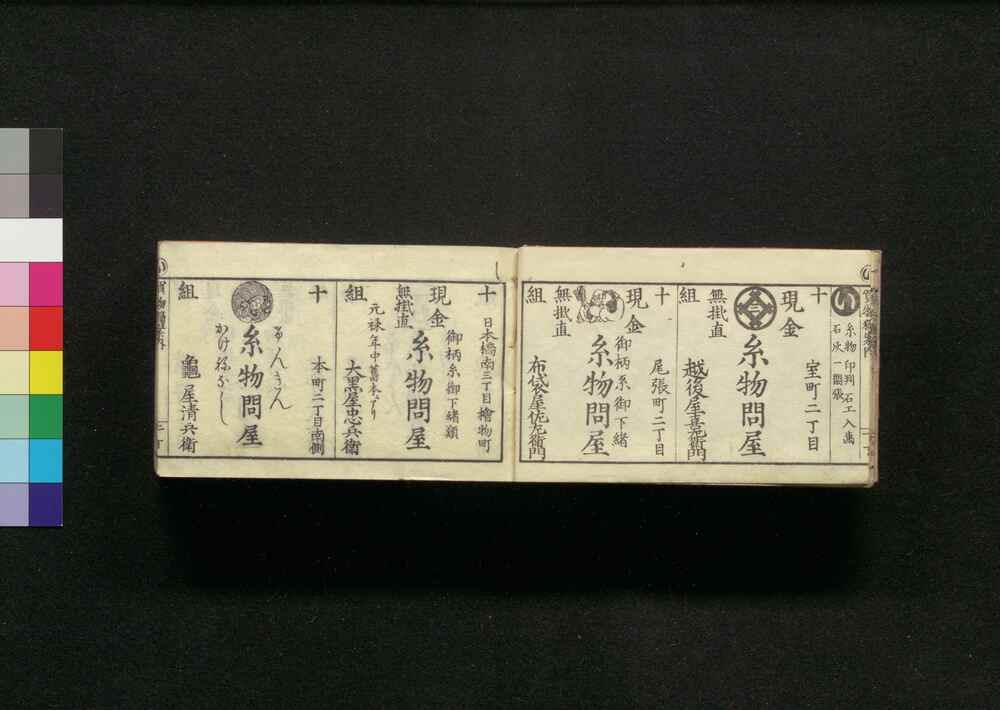 い
糸物 印判 石工 入歯
石灰 一閑張
十
室町二丁目
現金
糸物問屋
無掛直
組
越後屋喜右衛門
十
尾張町二丁目
現金
御柄糸 御下緒
糸物問屋
無掛直
組
布袋屋佐左衛門
十
日本橋南三丁目 檜物町
御柄糸 御下緒類
現金
糸物問屋
無掛直
元禄年中
組
大黒屋忠兵衛
十
本町二丁目南側
げんきん
糸物問屋
かけねなし
組
龜屋清兵衛